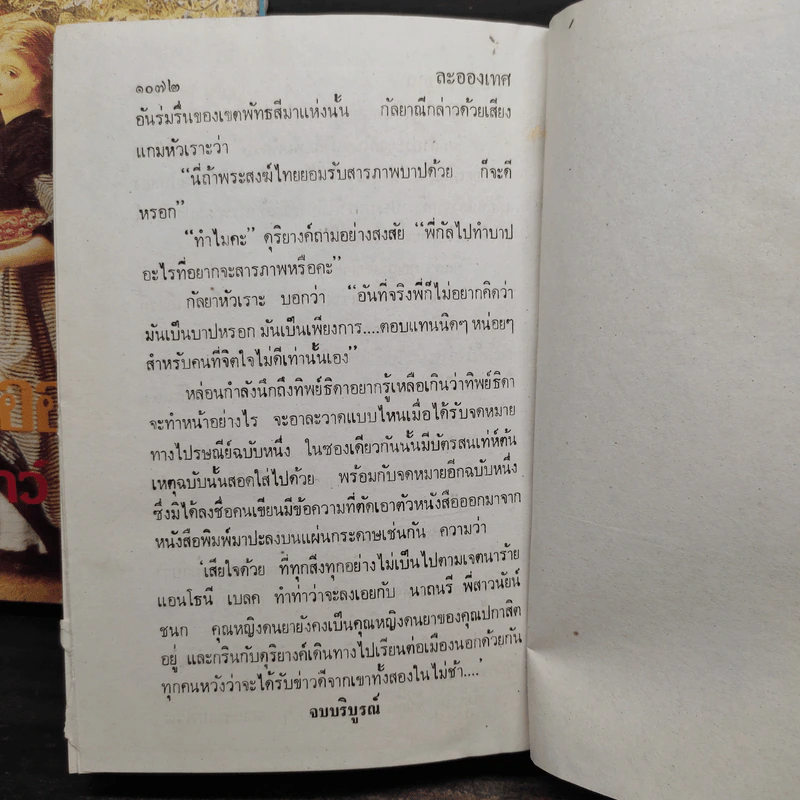 ๑๐๗๒ ละอองเทศ
อันร่มรื่นของเขตพัทธสีมาแห่งนั้น กัลยาณีกล่าวด้วยเสียง
แกมหัวเราะว่า
“นี่ถ้าพระสงฆ์ไทยยอมรับสารภาพบาปด้วย ก็จะดี
หรอก”
“ทำไมคะ” ดุริยางค์ถามอย่างสงสัย “พี่กัลไปทำบาป
อะไรที่อยากจะสารภาพหรือคะ”
กัลยาหัวเราะ บอกว่า “อันที่จริงพี่ก็ไม่อยากคิดว่า
มันเป็นบาปหรอก มันเป็นเพียงการ....ตอบแทนนิดๆ หน่อยๆ
สำหรับคนที่จิตใจไม่ดีเท่านั้นเอง”
หล่อนกำลังนึกถึงทิพย์ธิดาอยากรู้เหลือเกินว่าทิพย์ธิดา
จะทำหน้าอย่างไร จะอาละวาดแบบไหนเมื่อได้รับจดหมาย
ทางไปรษณีย์ฉบับหนึ่ง ในซองเดียวกันนั้นมีบัตรสนเท่ห์ต้น
เหตุฉบับนั้นสอดใส่ไปด้วย พร้อมกับจดหมายอีกฉบับหนึ่ง
ซึ่งมิได้ลงชื่อคนเขียนมีข้อความที่ตัดเอาตัวหนังสือออกมาจาก
หนังสือพิมพ์มาปะลงบนแผ่นกระดาษเช่นกัน ความว่า
‘เสียใจด้วย ที่ทุกสิ่งทุกอย่างไม่เป็นไปตามเจตนาร้าย
แอนโธนี เบลค ทำท่าว่าจะลงเอยกับ นาถนรี พี่สาวนัยน์
ชนก คุณหญิงดนยายังคงเป็นคุณหญิงดนยาของคุณปกาสิต
อยู่ และกรินกับดุริยางค์เดินทางไปเรียนต่อเมืองนอกด้วยกัน
ทุกคนหวังว่าจะได้รับข่าวดีจากเขาทั้งสองในไม่ช้า....’
จบบริบูรณ์